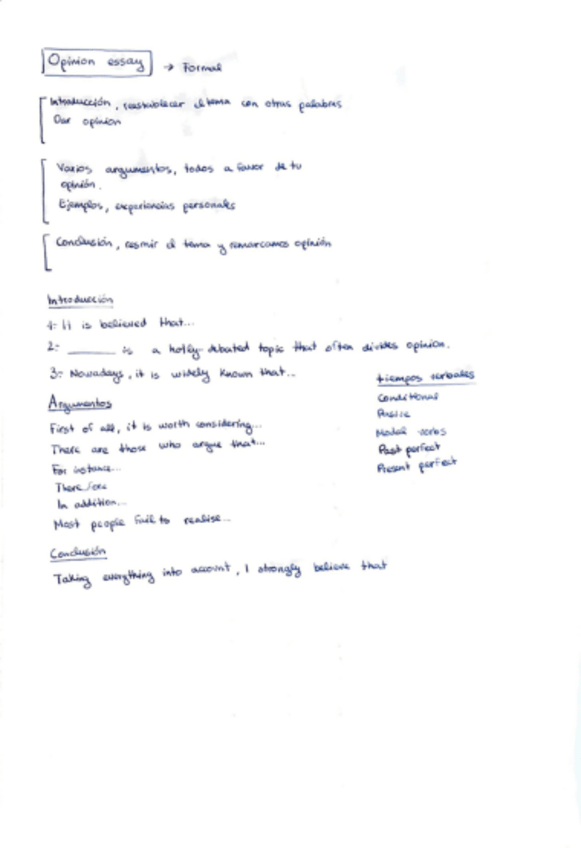 Opinion essay → Formal
Introducción, reestablecer el tema con otras palabras
Dar opinión
Varios argumentos, todos a favor de tu
opinión.
Ejemplos, experiencias personales
Conclusión, resmir el tema y remarcamos opinión
Introducción
1- It is believed that...
2- ______ is a hotly-debated topic that often divides opinion.
3- Nowadays, it is widely known that...
tiempos verbales
Conditional
Modal verbs
Past perfect
Present perfect
Argumentos
First of all, it is worth considering...
There are those who argue that...
For instance...
Therefore
In addition...
Most people fail to realise...
Conclusión
Taking everything into account, I strongly believe that